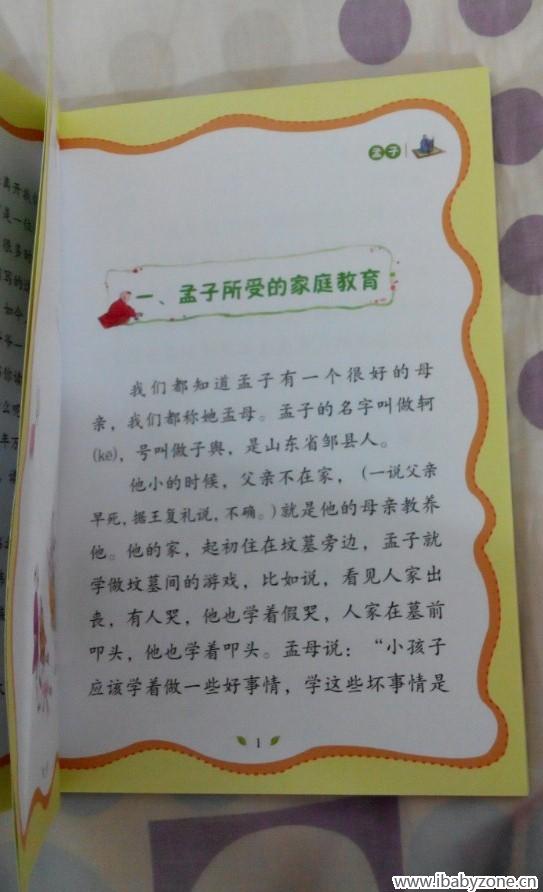 孟子
一、孟子所受的家庭教育
我们都知道孟子有一个很好的母
亲，我们都称她孟母。孟子的名字叫做轲
(kē)，号叫做子舆，是山东省邹县人。
他小的时候，父亲不在家，（一说父亲
早死，据王复礼说，不确。）就是他的母亲教养
他。他的家，起初住在坟墓旁边，孟子就
学做坟墓间的游戏，比如说，看见人家出
丧，有人哭，他也学着假哭，人家在墓前
叩头，他也学着叩头。孟母说：“小孩子
应该学着做一些好事情，学这些坏事情是
1
www.ibabyzone.cn